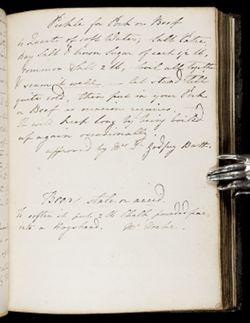 Pickle for Pork or Beef
4 Quarts of soft Water, Salt Petre,
Bay Salt & brown Sugar of each 1/2 lb,
Common Salt 2 lb, boil all together
& scum it well — let stand till
quite cold, then put in your Pork
or Beef as occasion requires.
will keep long by being boiled
up again occasionally
approved by Mrs Godfrey
Beer Stale or acid.
To soften it put Chalk pounded fine
into a Hogshead. Mr